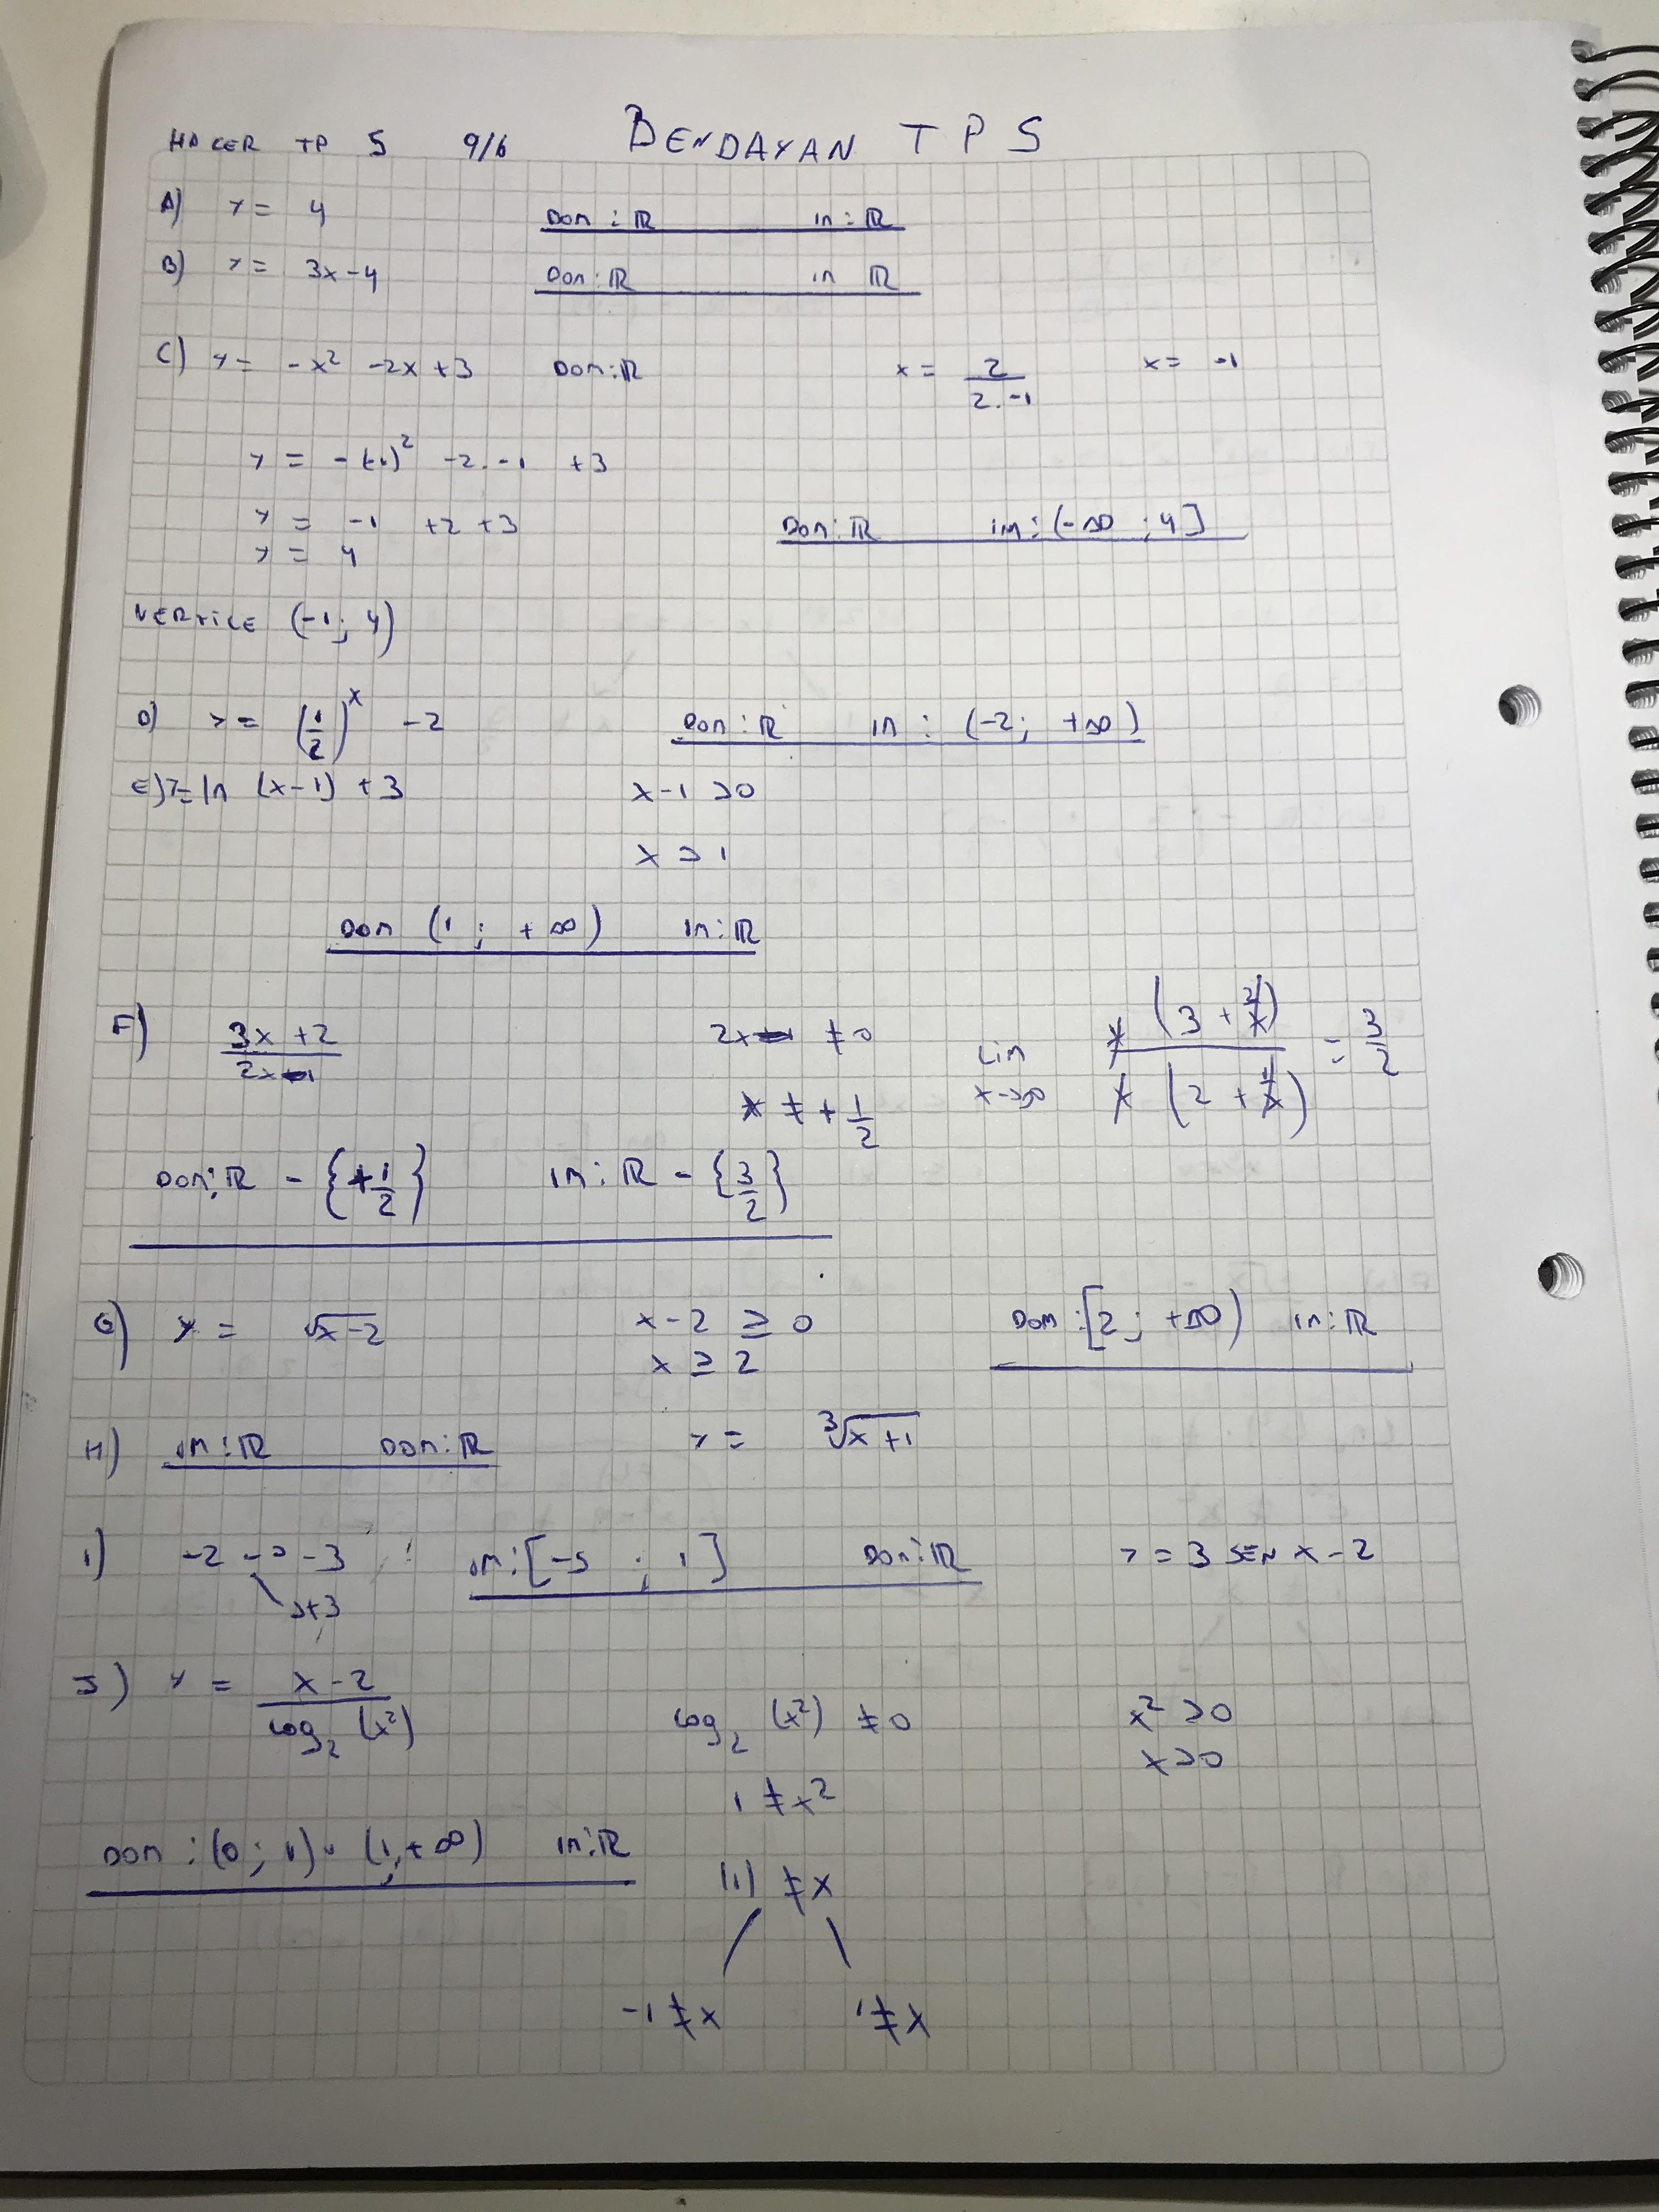 HACER TP 5 9/6 BENDAYAN TP 5
A) y = 4 Dom: ℝ im: ℝ
B) y = 3x-4 Dom: ℝ im ℝ
C) y = -x² -2x +3 Dom: ℝ x = 2/(2.-1) x = -1
y = -(-1)² -2.-1 +3
y = -1 +2 +3 Dom: ℝ im: (-∞ ; 4]
y = 4
VERTICE (-1; 4)
D) y = (1/2)^x -2 Dom: ℝ im: (-2; +∞)
E) y = ln (x-1) +3 x-1 >0
x > 1
Dom (1 ; +∞) im: ℝ
F) (3x+2)/(2x-1) 2x-1 ≠0 Lim x→∞ x(3 + 2/x)/x(2 + 1/x) = 3/2
x ≠ +1/2
Dom: ℝ - {+1/2} im: ℝ - {3/2}
G) y = √(x-2) x-2 ≥ 0 Dom: [2; +∞) im: ℝ
x ≥ 2
H) im: ℝ Dom: ℝ y = ∛(x+1)
I) -2 → -3 im: [-5 ; 1] Dom: ℝ y = 3 SEN x -2
→+3
J) y = (x-2)/(log₂ (x²)) log₂ (x²) ≠0 x² >0
x>0
1 ≠ x²
Dom: (0; 1) ∪ (1; +∞) im: ℝ |1| ≠x
-1 ≠x 1≠x